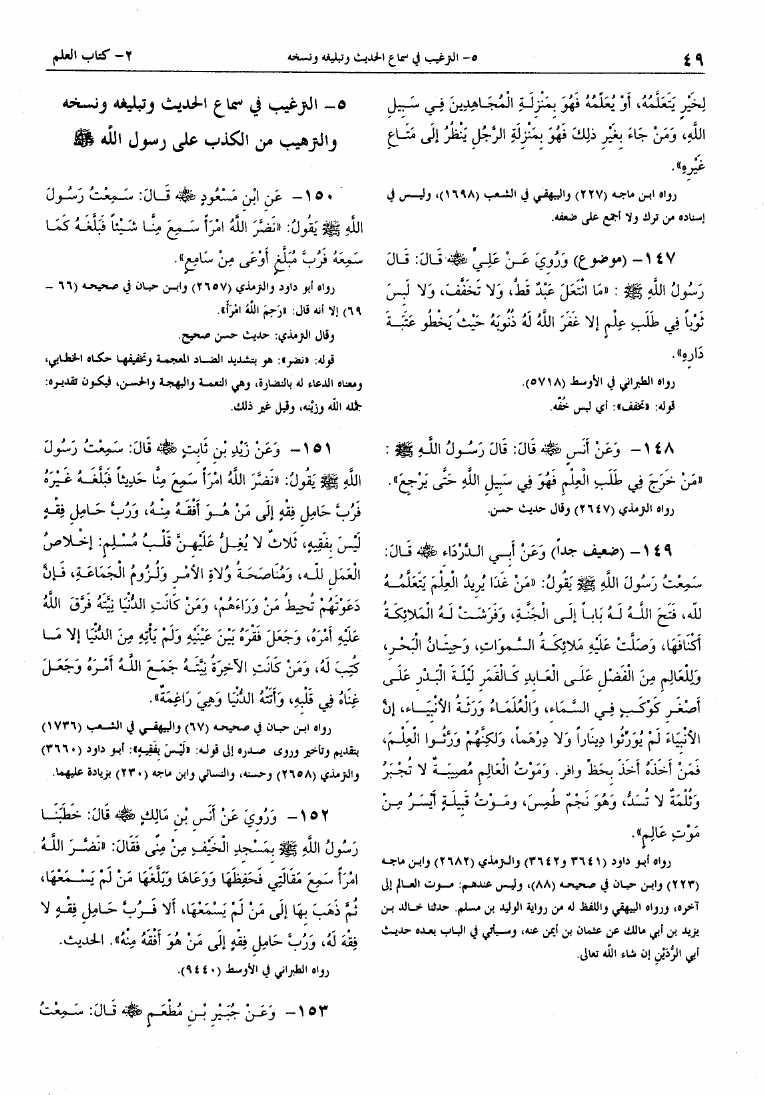 ٤٩
٥- الترغيب في سماع الحديث وتبليغه ونسخه
٢- كتاب العلم
لِخَيْرٍ يَتَعَلَّمُهُ، أَوْ يُعَلِّمُهُ فَهُوَ بِمَنْزِلَةِ الْمُجَاهِدِينَ فِي سَبِيلِ
اللهِ، وَمَنْ جَاءَ بِغَيْرِ ذلِكَ فَهُوَ بِمَنْزِلَةِ الرَّجُلِ يَنْظُرُ إِلَى مَتَاعِ
غَيْرِهِ».
رواه ابن ماجه (٢٢٧) والبيهقي في الشعب (١٦٩٨)، وليس في
إسناده من ترك ولا أجمع على ضعفه.
١٤٧- (موضوع) وَرُوِيَ عَـنْ عَلِيٍّ ﷺ قَالَ: قَالَ
رَسُولُ اللهِ ﷺ : «مَا انْتَعَلَ عَبْدٌ قَطُّ، وَلا تَخَفَّفَ، وَلا لَبِسَ
ثَوْباً فِي طَلَبِ عِلْمٍ إلا غَفَرَ اللَّهُ لَهُ ذُنُوبَهُ حَيْثُ يَخْطُو عَتَبَةَ
دَارِهِ».
رواه الطبراني في الأوسط (٥٧١٨).
قوله: «تخفف»: أي لبس خُفّه.
١٤٨- وَعَنْ أَنَسٍ ﷺ قَالَ: قَالَ رَسُولُ اللهِ ﷺ :
«مَنْ خَرَجَ فِي طَلَبِ الْعِلْمِ فَهُوَ فِي سَبِيلِ اللهِ حَتَّى يَرْجِعَ».
رواه الترمذي (٢٦٤٧) وقال حديث حسن.
١٤٩- (ضعيف جداً) وَعَنْ أَبِي الدَّرْدَاءِ ﷺ قَالَ:
سَمِعْتُ رَسُولَ اللهِ ﷺ يَقُولُ: «مَنْ غَدَا يُرِيدُ الْعِلْمَ يَتَعَلَّمُهُ
لله، فَتَحَ اللهُ لَهُ بَاباً إلَى الْجَنَّةِ، وَفَرَشَتْ لَهُ الْمَلائِكَةُ
أَكْنَافَهَا، وَصَلَّتْ عَلَيْهِ مَلائِكَةُ السَّموَاتِ، وَحِيتَانُ الْبَحْرِ،
وَلِلْعَالِمِ مِنَ الْفَضْلِ عَلَى الْعَابِدِ كَالْقَمَرِ لَيْلَةَ الْبَدْرِ عَلَى
أَصْغَرِ كَوْكَبٍ فِي السَّمَاءِ، وَالْعُلَمَاءُ وَرَثَةُ الأَنْبِيَاءِ، إنَّ
الأَنْبِيَاءَ لَمْ يُوَرِّثُوا دِينَاراً وَلا دِرْهَماً، وَلكِنَّهُمْ وَرَّثُوا الْعِلْمَ،
فَمَنْ أَخَذَهُ أَخَذَ بِحَظٍّ وافر. وَمَوْتُ الْعَالِمِ مُصِيبَةٌ لا تُجْبَرُ
وَثُلْمَةٌ لا تُسَدُّ، وَهُوَ نَجْمٌ طُمِسَ، ومَوْتُ قَبِيلَةٍ أَيْسَرُ مِنْ
مَوْتِ عَالِمٍ».
رواه أبو داود (٣٦٤١ و٣٦٤٢) والترمذي (٢٦٨٢) وابن ماجه
(٢٢٣) وابن حبان في صحيحه (٨٨)، وليس عندهم: موت العالم إلى
آخره، ورواه البيهقي واللفظ له من رواية الوليد بن مسلم. حدثنا خالد بن
يزيد بن أبي مالك عن عثمان بن أيمن عنه، وسيأتي في الباب بعده حديث
أبي الرُّدَيْنِ إن شاء الله تعالى.
٥- الترغيب في سماع الحديث وتبليغه ونسخه
والترهيب من الكذب على رسول الله ﷺ
١٥٠- عَنِ ابْنِ مَسْعُودٍ ﷺ قَالَ: سَمِعْتُ رَسُولَ
اللهِ ﷺ يَقُولُ: «نَضَّرَ اللَّهُ امْرَأً سَمِعَ مِنَّا شَيْئاً فَبَلَّغَهُ كَمَا
سَمِعَهُ فَرُبَّ مُبَلَّغٍ أَوْعَى مِنْ سَامِعٍ».
رواه أبو داود والترمذي (٢٦٥٧) وابن حبان في صحيحه (٦٦ -
٦٩) إلا أنه قال: «رَحِمَ اللَّهُ امْرَأً».
وقال الترمذي: حديث حسن صحيح.
قوله: «نضر»: هو بتشديد الضاد المعجمة وتخفيفها حكاه الخطابي،
ومعناه الدعاء له بالنضارة، وهي النعمة والبهجة والحسن، فيكون تقديره:
جمله الله وزينه، وقيل غير ذلك.
١٥١- وَعَنْ زَيْدِ بْنِ ثَابِتٍ ﷺ قَالَ: سَمِعْتُ رَسُولَ
اللهِ ﷺ يَقُولُ: «نَضَّرَ اللَّهُ امْرَأً سَمِعَ مِنَّا حَدِيثاً فَبَلَّغَهُ غَيْرَهُ
فَرُبَّ حَامِلِ فِقْهٍ إلَى مَنْ هُوَ أَفْقَهُ مِنْهُ، وَرُبَّ حَامِلِ فِقْهٍ
لَيْسَ بِفَقِيهٍ، ثَلاثٌ لا يُغِلُّ عَلَيْهِنَّ قَلْبُ مُسْلِمٍ: إخْلاصُ
الْعَمَلِ لله، وَمُنَاصَحَةُ وُلاةِ الأَمْرِ وَلُزُومُ الْجَمَاعَةِ، فَإنَّ
دَعْوَتَهُمْ تُحِيطُ مَنْ وَرَاءَهُمْ، وَمَنْ كَانَتِ الدُّنْيَا نِيَّتَهُ فَرَّقَ اللَّهُ
عَلَيْهِ أَمْرَهُ، وَجَعَلَ فَقْرَهُ بَيْنَ عَيْنَيْهِ وَلَمْ يَأْتِهِ مِنَ الدُّنْيَا إلا مَا
كُتِبَ لَهُ، وَمَنْ كَانَتِ الآخِرَةُ نِيَّتَهُ جَمَعَ اللَّهُ أَمْرَهُ وَجَعَلَ
غِنَاهُ فِي قَلْبِهِ، وَأَتَتْهُ الدُّنْيَا وَهِيَ رَاغِمَةٌ».
رواه ابن حبان في صحيحه (٦٧) والبيهقي في الشعب (١٧٣٦)
بتقديم وتأخير وروى صدره إلى قوله: «لَيْسَ بِفَقِيهٍ»: أبو داود (٣٦٦٠)
والترمذي (٢٦٥٨) وحسنه، والنسائي وابن ماجه (٢٣٠) بزيادة عليهما.
١٥٢- وَرُوِيَ عَنْ أَنَسِ بْنِ مَالِكٍ ﷺ قَالَ: خَطَبَنَا
رَسُولُ اللهِ ﷺ بِمَسْجِدِ الْخَيْفِ مِنْ مِنًى فَقَالَ: «نَضَّرَ اللهُ
امْرَأً سَمِعَ مَقَالَتِي فَحَفِظَهَا وَوَعَاهَا وَبَلَّغَهَا مَنْ لَمْ يَسْمَعْهَا،
ثُمَّ ذَهَبَ بِهَا إلَى مَنْ لَمْ يَسْمَعْهَا، أَلا فَرُبَّ حَامِلِ فِقْهٍ لا
فِقْهَ لَهُ، وَرُبَّ حَامِلِ فِقْهٍ إلَى مَنْ هُوَ أَفْقَهُ مِنْهُ». الحديث.
رواه الطبراني في الأوسط (٩٤٤٠).
١٥٣- وَعَنْ جُبَيْرِ بْنِ مُطْعَمٍ ﷺ قَالَ: سَمِعْتُ